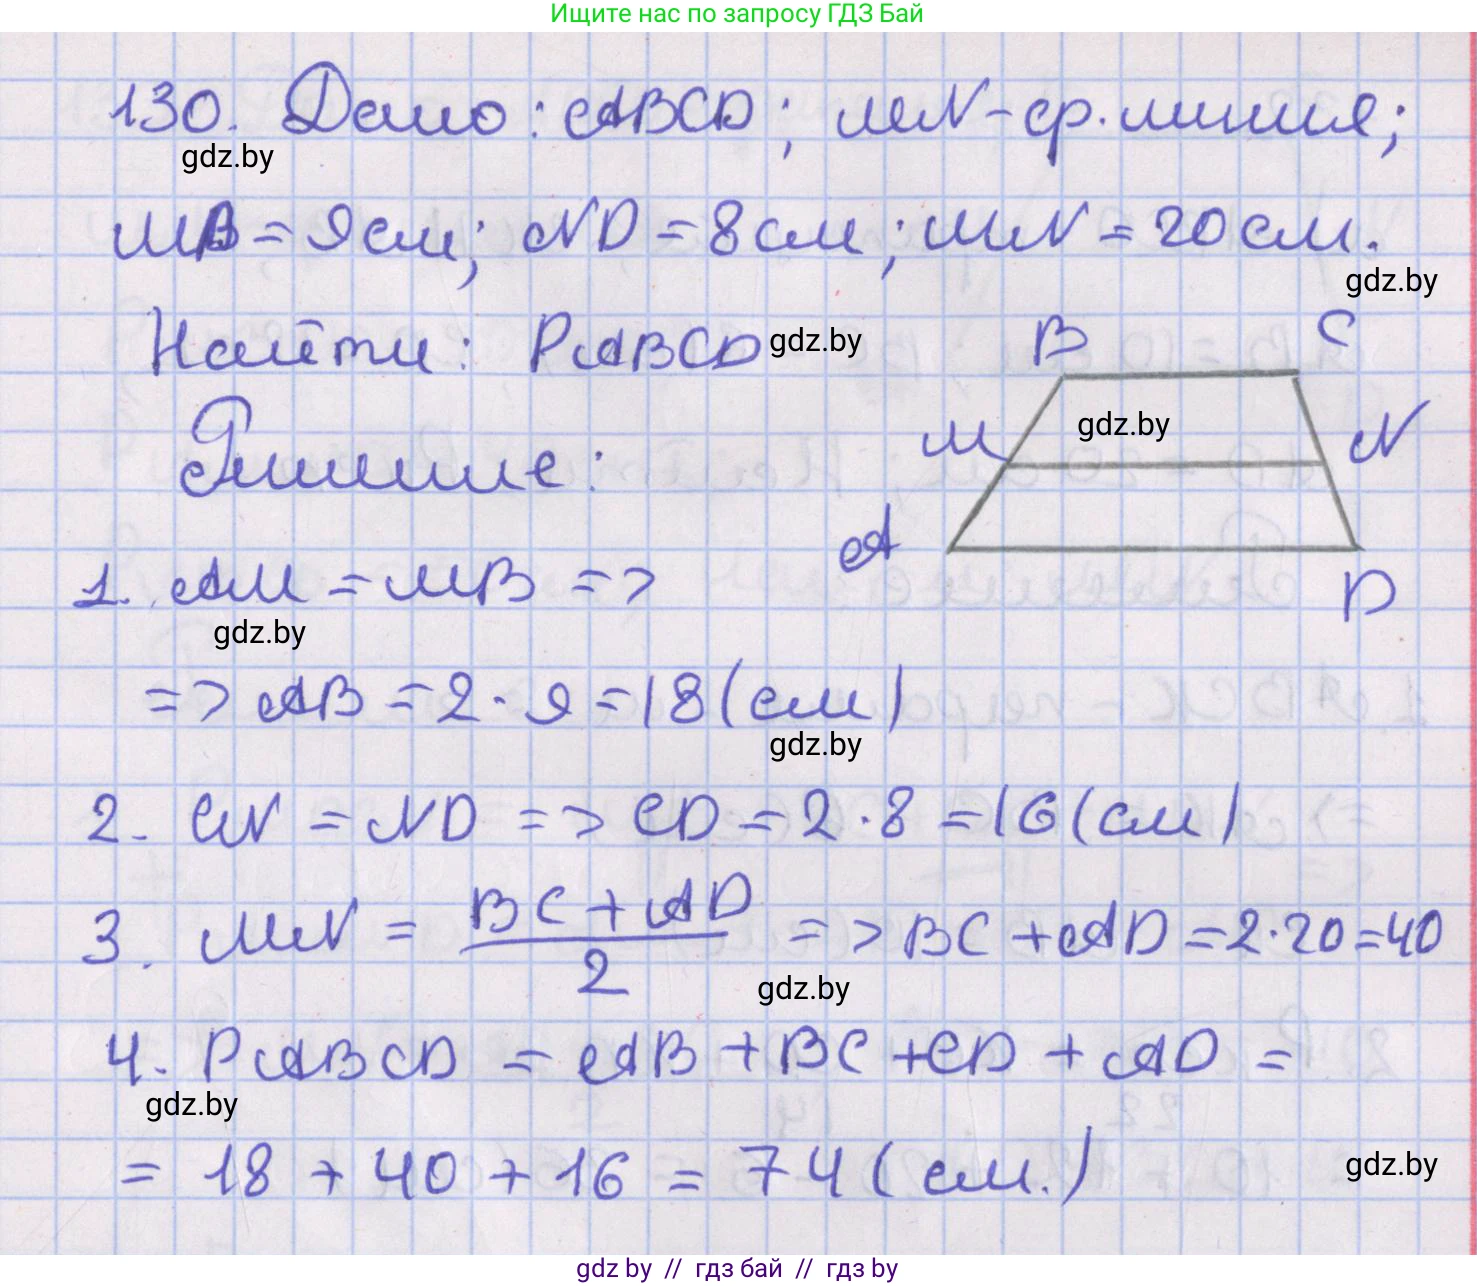 Ищите нас по запросу ГДЗ Бай
130. Дано: ABCD; MN-ср. линия;
gdz.by
MB = 9см; ND = 8см; MN = 20см.
gdz.by
Найти: PABCD
gdz.by
B C
gdz.by
M N
Решение:
A
D
1. AM = MB =>
gdz.by
=> AB = 2·9 = 18 (см)
gdz.by
2. CN = ND => CD = 2·8 = 16 (см)
3. MN = BC + AD / 2 => BC + AD = 2·20 = 40
gdz.by
4. PABCD = AB + BC + CD + AD =
gdz.by
= 18 + 40 + 16 = 74 (см.)
gdz.by
gdz by // гдз бай // гдз by